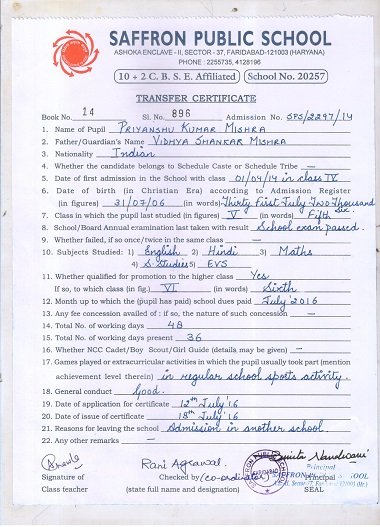 SAFFRON PUBLIC SCHOOL
ASHOKA ENCLAVE - II, SECTOR - 37, FARIDABAD-121003 (HARYANA)
PHONE : 2255735, 4128196
10 + 2 C. B. S. E. Affiliated School No. 20257
TRANSFER CERTIFICATE
Book No. 24 Sl. No. 896 Admission No. SPS/2297/14
1. Name of Pupil PRIYANSHU KUMAR MISHRA
2. Father/Guardian's Name VIDHYA SHANKAR MISHRA
3. Nationality Indian
4. Whether the candidate belongs to Schedule Caste or Schedule Tribe —
5. Date of first admission in the School with class 01/04/14 in class IV
6. Date of birth (in Christian Era) according to Admission Register
(in figures) 31/07/06 (in words) Thirty First July Two Thousand Six
7. Class in which the pupil last studied (in figures) V (in words) Fifth
8. School/Board Annual examination last taken with result School exam passed.
9. Whether failed, if so once/twice in the same class —
10. Subjects Studied: 1) English 2) Hindi 3) Maths
4) S.Studies 5) EVS
11. Whether qualified for promotion to the higher class Yes
If so, to which class (in fig.) VI (in words) Sixth
12. Month up to which the (pupil has paid) school dues paid July' 2016
13. Any fee concession availed of : if so, the nature of such concession —
14. Total No. of working days 48
15. Total No. of working days present 36
16. Whether NCC Cadet/Boy Scout/Girl Guide (details may be given) —
17. Games played or extracurricular activities in which the pupil usually took part (mention
achievement level therein) in regular school sports activity.
18. General conduct Good.
19. Date of application for certificate 12th July'16
20. Date of issue of certificate 18th July'16
21. Reasons for leaving the school Admission in another school.
22. Any other remarks —
Rani Agrawal
Signature of Checked by (co-ordinator) Principal
Class teacher (state full name and designation) SEAL